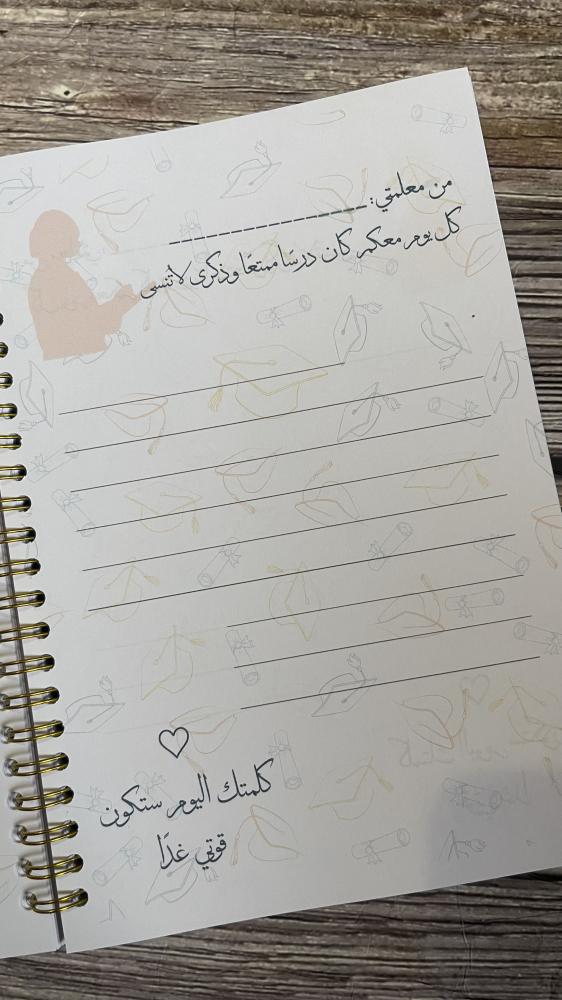 من معلمتي: ـــــــــــــــــــــــــــــ
كل يوم معكم كان درسًا ممتعًا وذكرى لا تُنسى
كلمتك اليوم ستكون
قوتي غدًا